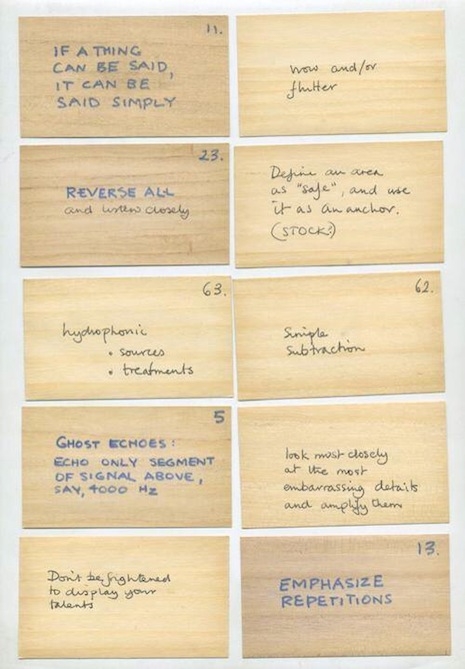 11.
IF A THING
CAN BE SAID,
IT CAN BE
SAID SIMPLY
wow and/or
flutter
23.
REVERSE ALL
and listen closely
Define an area
as "safe", and use
it as an anchor.
(STOCK?)
63.
hydrophonic
• sources
• treatments
62.
Simple
Subtraction
5
GHOST ECHOES:
ECHO ONLY SEGMENT
OF SIGNAL ABOVE,
SAY, 4000 HZ
look most closely
at the most
embarrassing details
and amplify them
Don't be frightened
to display your
talents
13.
EMPHASIZE
REPETITIONS